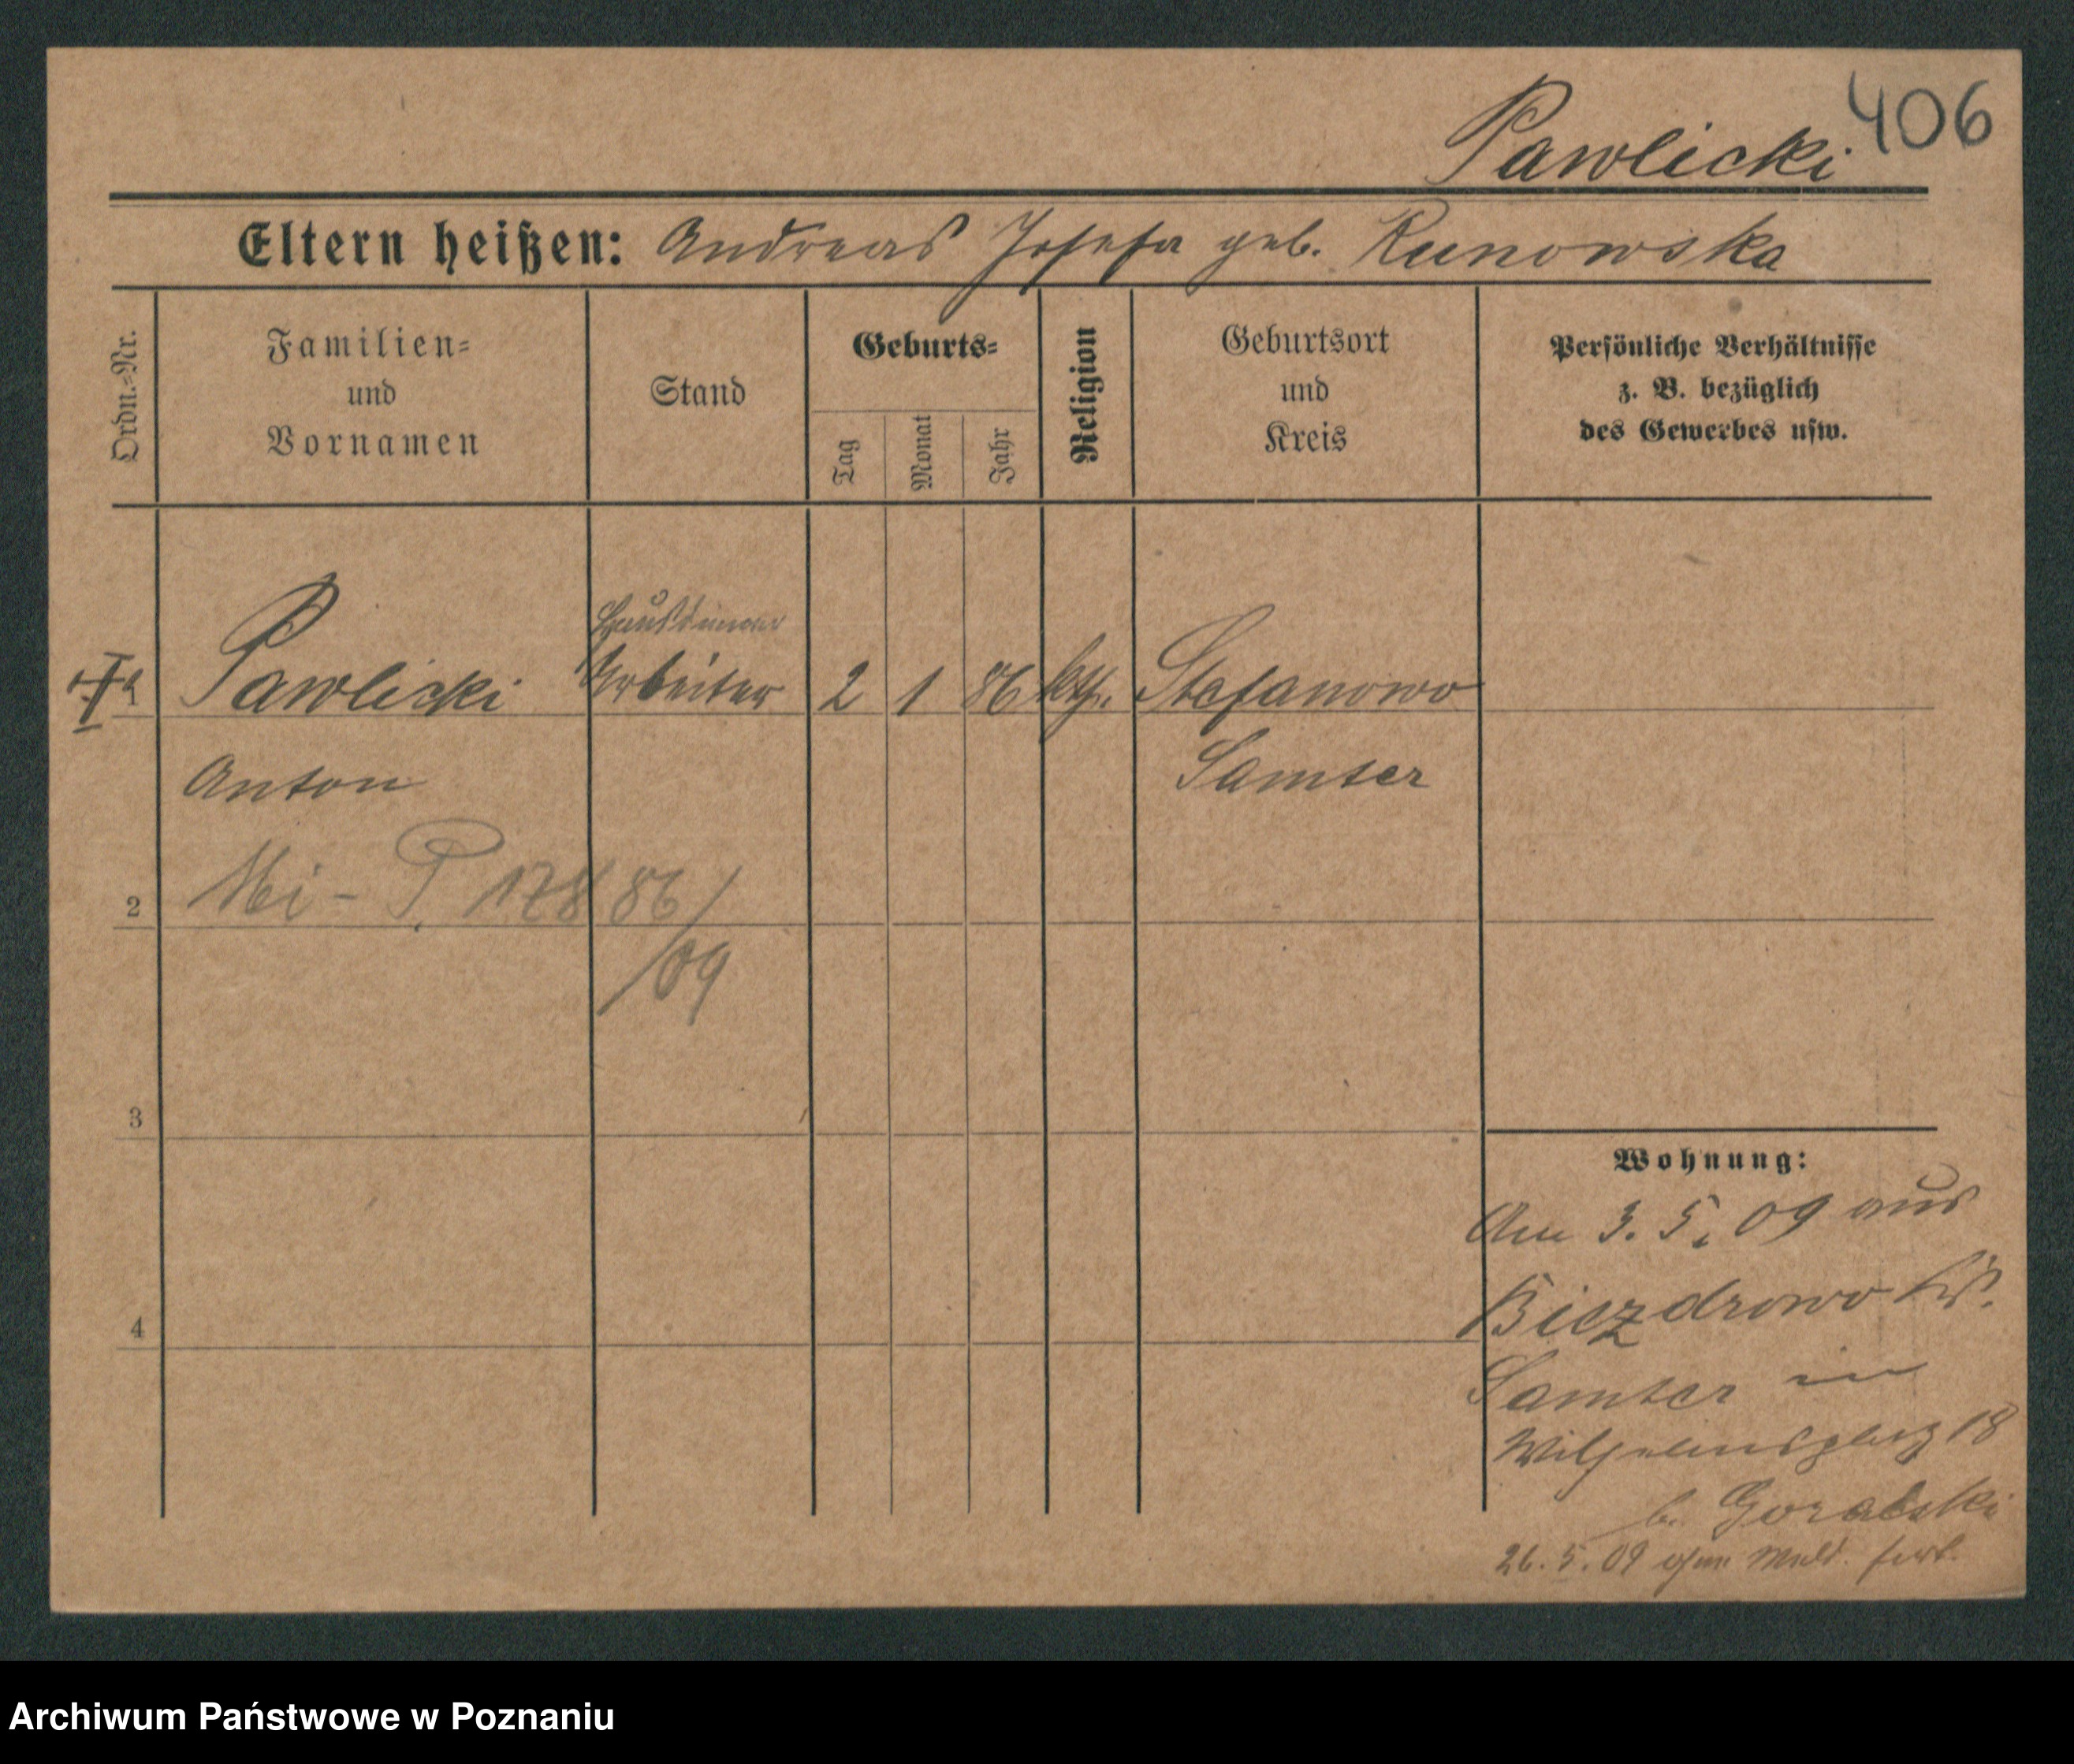 406
Pawlicki
Eltern heißen: Andreas Josefa geb. Kunowska
Ordn.-Nr.
Familien-
und
Vornamen
Stand
Geburts-
Tag
Monat
Jahr
Religion
Geburtsort
und
Kreis
Persönliche Verhältnisse
z. B. bezüglich
des Gewerbes usw.
Hausdiener
Pawlicki Arbeiter 2 1 86 kth. Stefanowo
Anton Samter
2 Mi - P. 178 86/
/09
3
4
Wohnung:
Am 3. 5. 09 aus
Biezdrowo Krs.
Samter in
Wilhelmsplatz 18
b. Goralski
26. 5. 09 ohne Meld. fort.
Archiwum Państwowe w Poznaniu